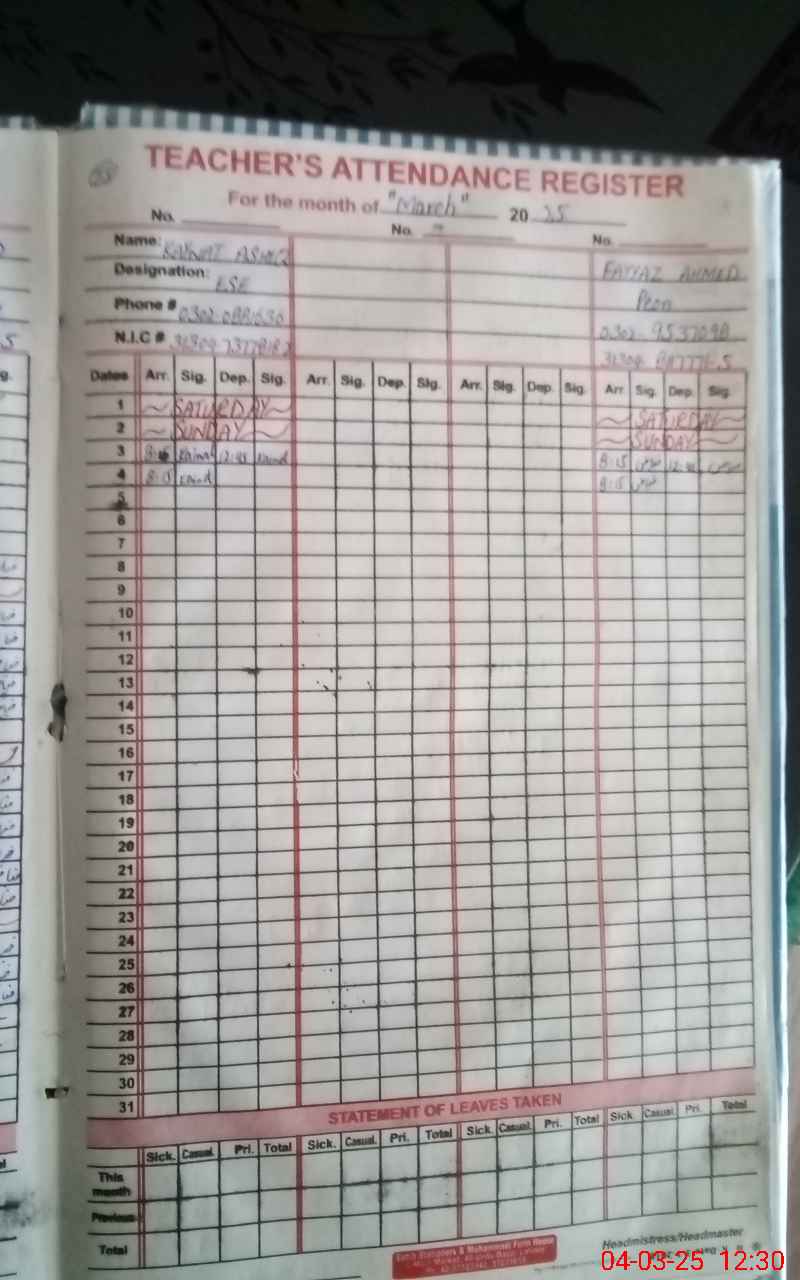 TEACHER'S ATTENDANCE REGISTER
For the month of "March" 20 25
No. No. No.
Name: KAINAT ASHIQ FAYYAZ AHMED
Designation: ESE Peon
Phone #
N.I.C #
Dates Arr. Sig. Dep. Sig. Arr. Sig. Dep. Sig. Arr. Sig. Dep. Sig. Arr. Sig. Dep. Sig.
1 SATURDAY SATURDAY
2 SUNDAY SUNDAY
3 8:15 12:45 8:15 12:45
4 8:15 8:15
5
6
7
8
9
10
11
12
13
14
15
16
17
18
19
20
21
22
23
24
25
26
27
28
29
30
31
STATEMENT OF LEAVES TAKEN
Sick. Casual. Pri. Total Sick. Casual. Pri. Total Sick. Casual. Pri. Total Sick. Casual. Pri. Total
This month
Previous
Total
Headmistress/Headmaster
04-03-25 12:30